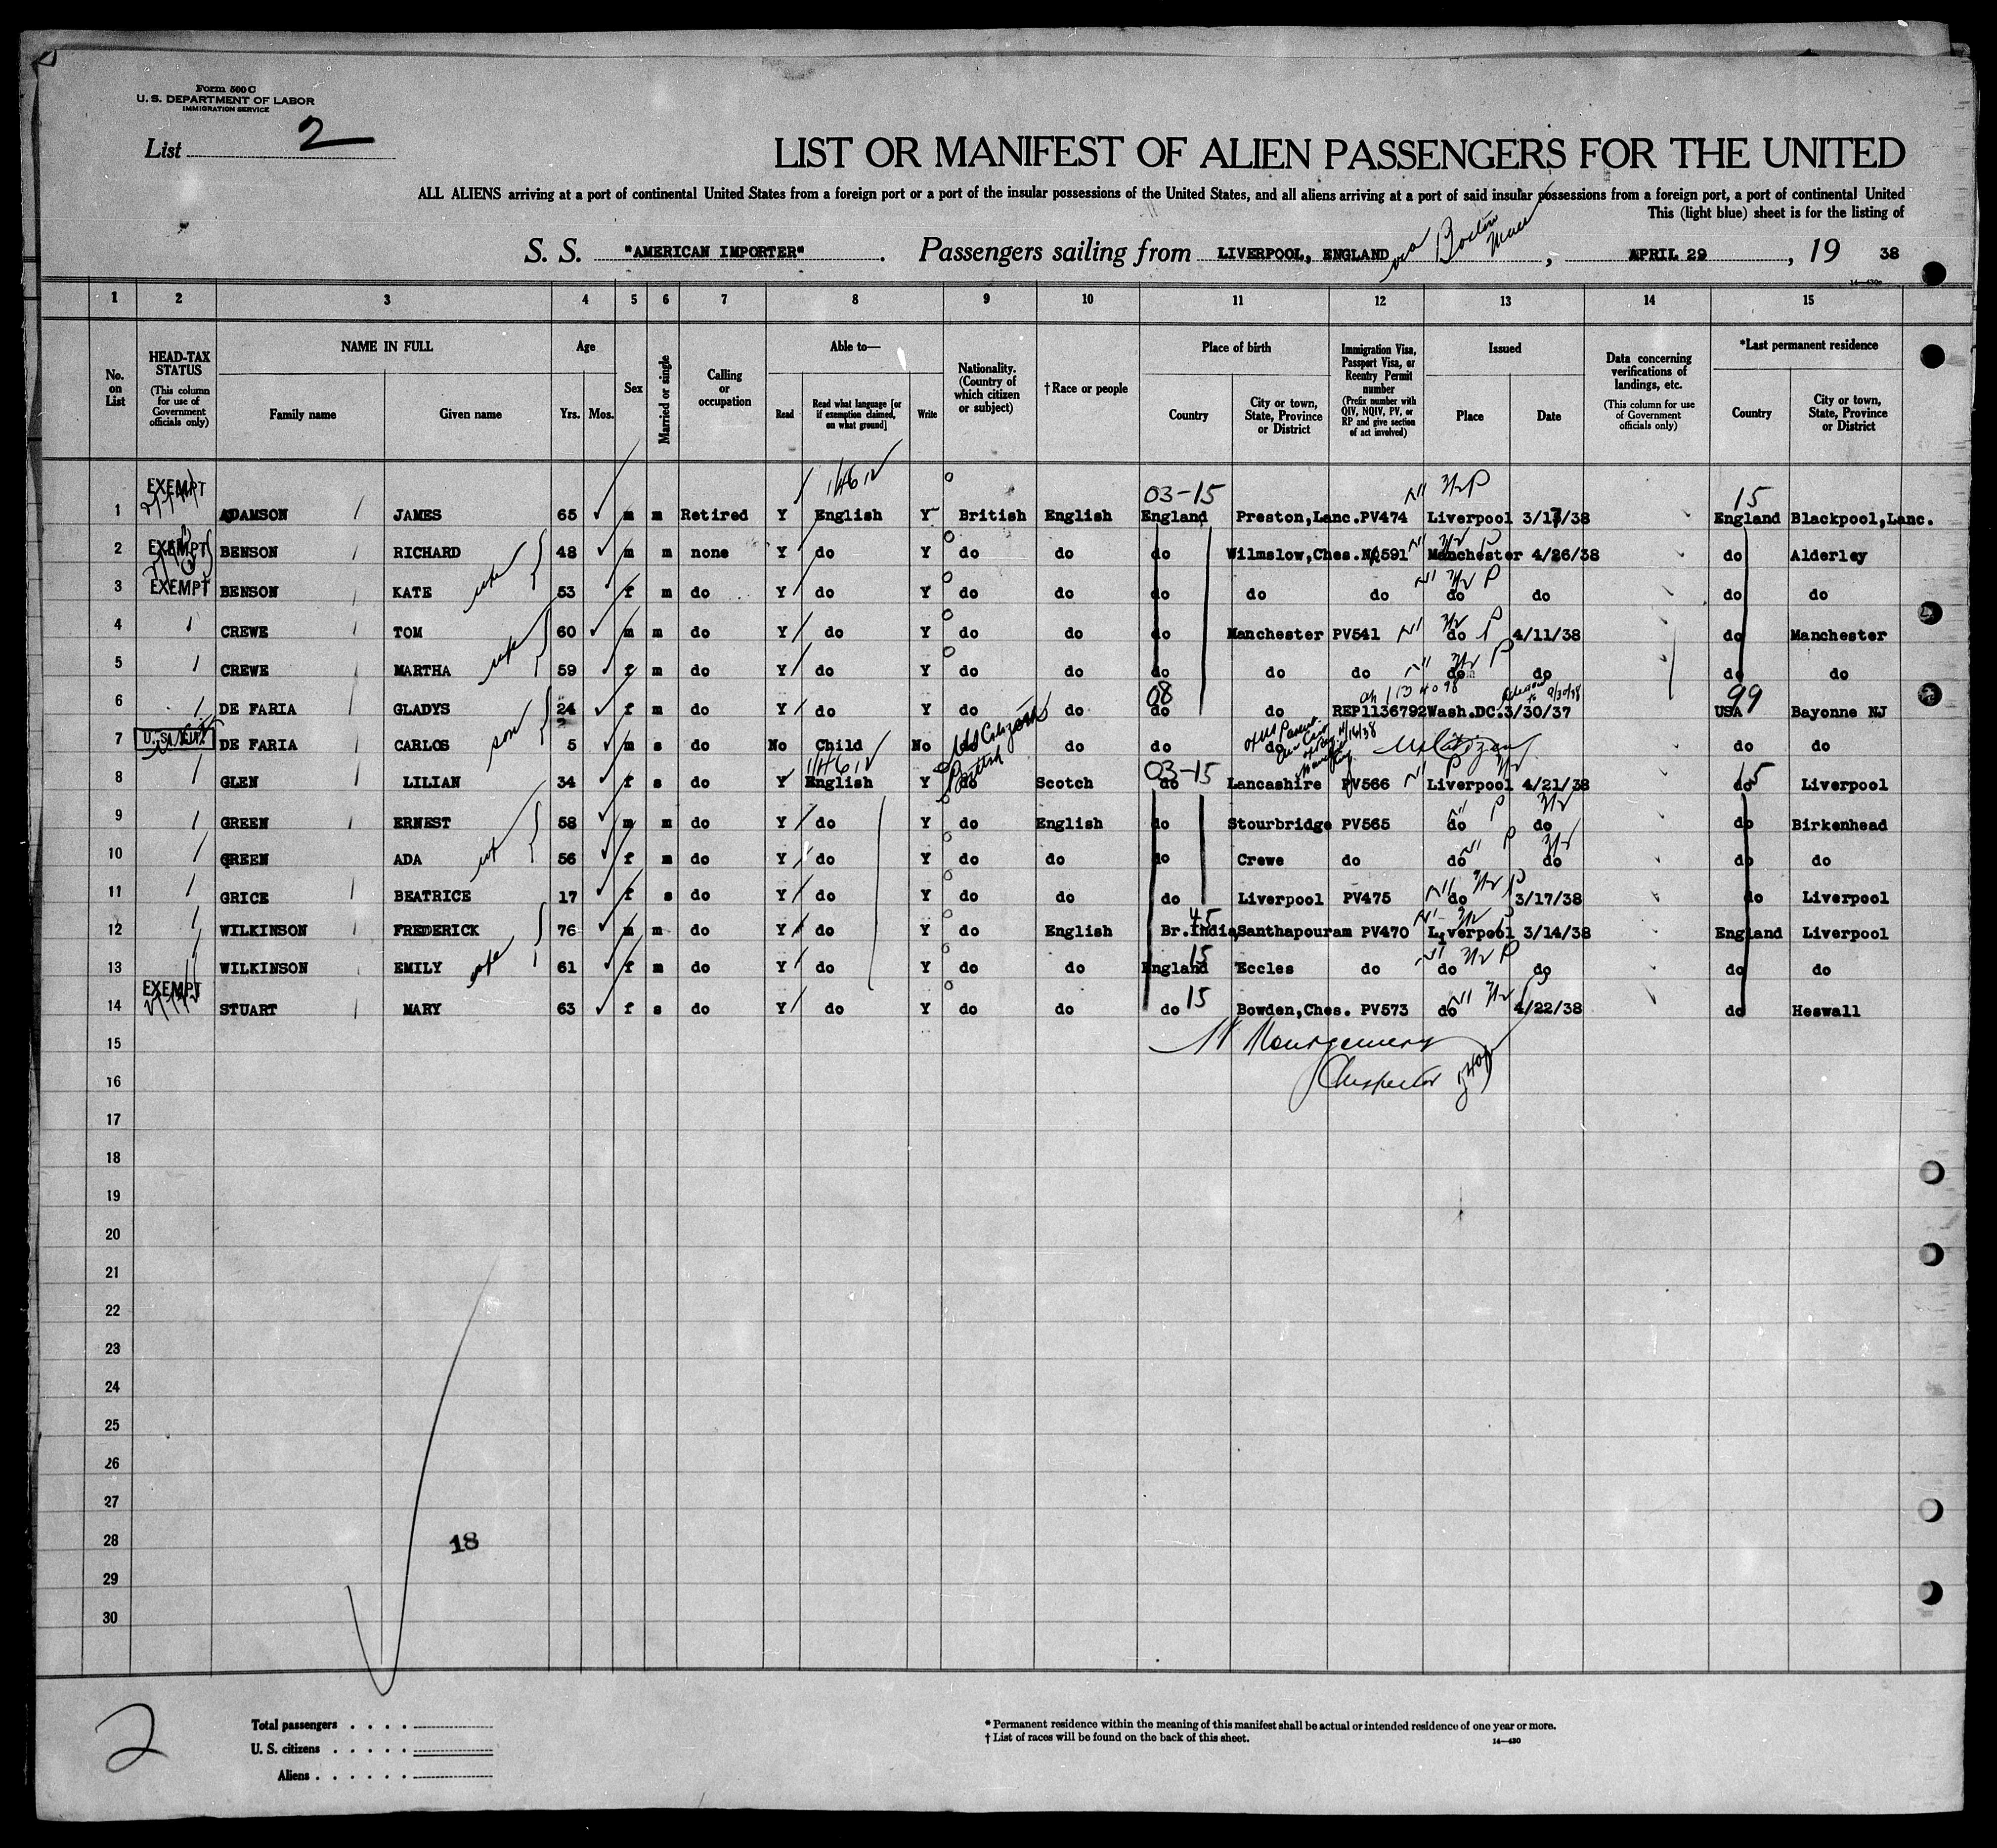 Form 500 C
U. S. DEPARTMENT OF LABOR
IMMIGRATION SERVICE
List 2
LIST OR MANIFEST OF ALIEN PASSENGERS FOR THE UNITED
ALL ALIENS arriving at a port of continental United States from a foreign port or a port of the insular possessions of the United States, and all aliens arriving at a port of said insular possessions from a foreign port, a port of continental United
This (light blue) sheet is for the listing of
S. S. "AMERICAN IMPORTER". Passengers sailing from LIVERPOOL, ENGLAND via Boston Mass, APRIL 29, 19 38
14—430
1 2 3 4 5 6 7 8 9 10 11 12 13 14 15
No. on List
HEAD-TAX STATUS (This column for use of Government officials only)
NAME IN FULL
Family name Given name
Age
Yrs. Mos.
Sex
Married or single
Calling or occupation
Able to—
Read Read what language [or if exemption claimed, on what ground] Write
Nationality. (Country of which citizen or subject)
† Race or people
Place of birth
Country City or town, State, Province or District
Immigration Visa, Passport Visa, or Reentry Permit number (Prefix number with QIV, NQIV, PV, or RP and give section of act involved)
Issued
Place Date
Data concerning verifications of landings, etc. (This column for use of Government officials only)
*Last permanent residence
Country City or town, State, Province or District
03-15 15
1 EXEMPT ADAMSON JAMES 65 m m Retired Y English Y British English England Preston,Lanc. PV474 Liverpool 3/17/38 England Blackpool,Lanc.
2 EXEMPT BENSON RICHARD 48 m m none Y do Y do do do Wilmslow,Ches. NQ591 Manchester 4/26/38 do Alderley
3 EXEMPT BENSON KATE wife 53 f m do Y do Y do do do do do do do do do
4 CREWE TOM 60 m m do Y do Y do do do Manchester PV541 do 4/11/38 do Manchester
5 CREWE MARTHA wife 59 f m do Y do Y do do do do do do do do do
08 99
6 DE FARIA GLADYS 24 f m do Y do Y do do do do REP1136792 Wash.DC. 3/30/37 USA Bayonne NJ
7 U.S. CIT. DE FARIA CARLOS son 5 m s do No Child No do US Citizen do do do US Citizen do do
03-15 15
8 GLEN LILIAN 34 f s do Y English Y do British Scotch do Lancashire PV566 Liverpool 4/21/38 do Liverpool
9 GREEN ERNEST 58 m m do Y do Y do English do Stourbridge PV565 do do do Birkenhead
10 GREEN ADA 56 f m do Y do Y do do do Crewe do do do do do
11 GRICE BEATRICE 17 f s do Y do Y do do do Liverpool PV475 do 3/17/38 do Liverpool
12 WILKINSON FREDERICK 76 m m do Y do Y do English Br.India 45 Santhapouram PV470 Liverpool 3/14/38 England Liverpool
13 WILKINSON EMILY wife 61 f m do Y do Y do do England 15 Eccles do do do do do
14 EXEMPT STUART MARY 63 f s do Y do Y do do do 15 Bowden,Ches. PV573 do 4/22/38 do Heswall
15 Montgomery
16 Inspector
17
18
19
20
21
22
23
24
25
26
27
28 18
29
30
2
Total passengers . . . .
U. S. citizens . . . . .
Aliens . . . . . .
* Permanent residence within the meaning of this manifest shall be actual or intended residence of one year or more.
† List of races will be found on the back of this sheet. 14—430